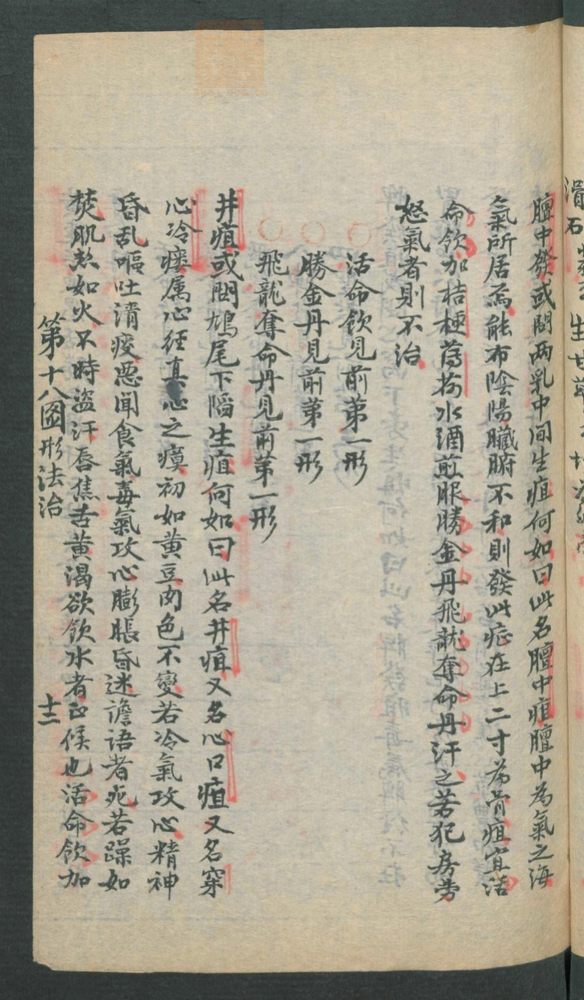 膻中發或問兩乳中间生疽何如曰此名膻中疽膻中為氣之海
氣所居焉能布陰陽臟腑不和則發此症在上二寸為骨疽宜活
命飲加桔梗薄荷水酒煎服勝金丹飛龍奪命丹汗之若犯房劳
怒氣者則不治
活命飲見前第一形
勝金丹見前第一形
飛龍奪命丹見前第一形
井疽或問鳩尾下陷生疽何如曰此名井疽又名心口疽又名穿
心冷瘻属心径真心之瘼初如黄豆肉色不變若冷氣攻心精神
昏乱嘔吐清痰悪闻食氣毒氣攻心膨脹昏迷谵语者死若躁如
焚肌熱如火不時盗汗唇焦舌黄渴欲飲水者正候也活命飲加
第十八圖形法治
十三